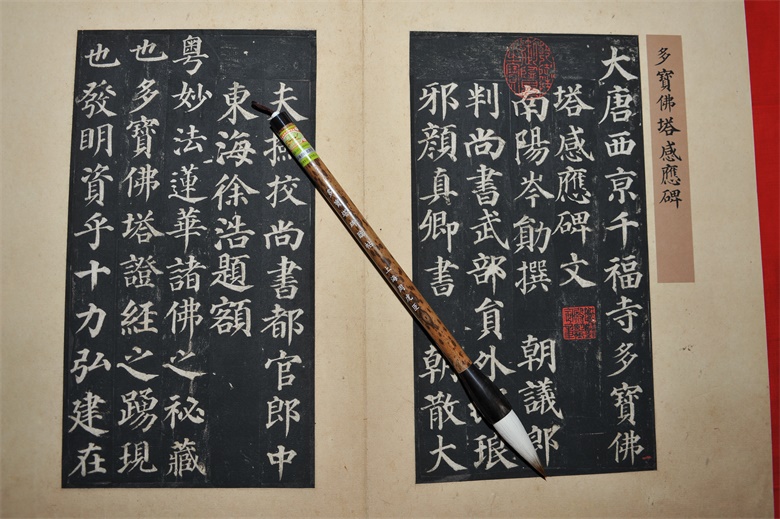 多寶佛塔感應碑
大唐西京千福寺多寶佛
塔感應碑文
南陽岑勛撰 朝議郎
判尚書武部貟外琅
邪顏真卿書 朝散大
夫撿挍尚書都官郎中
東海徐浩題額
粵妙法蓮華諸佛之祕藏
也多寶佛塔證經之踴現
也發明資乎十力弘建在
上海周虎臣